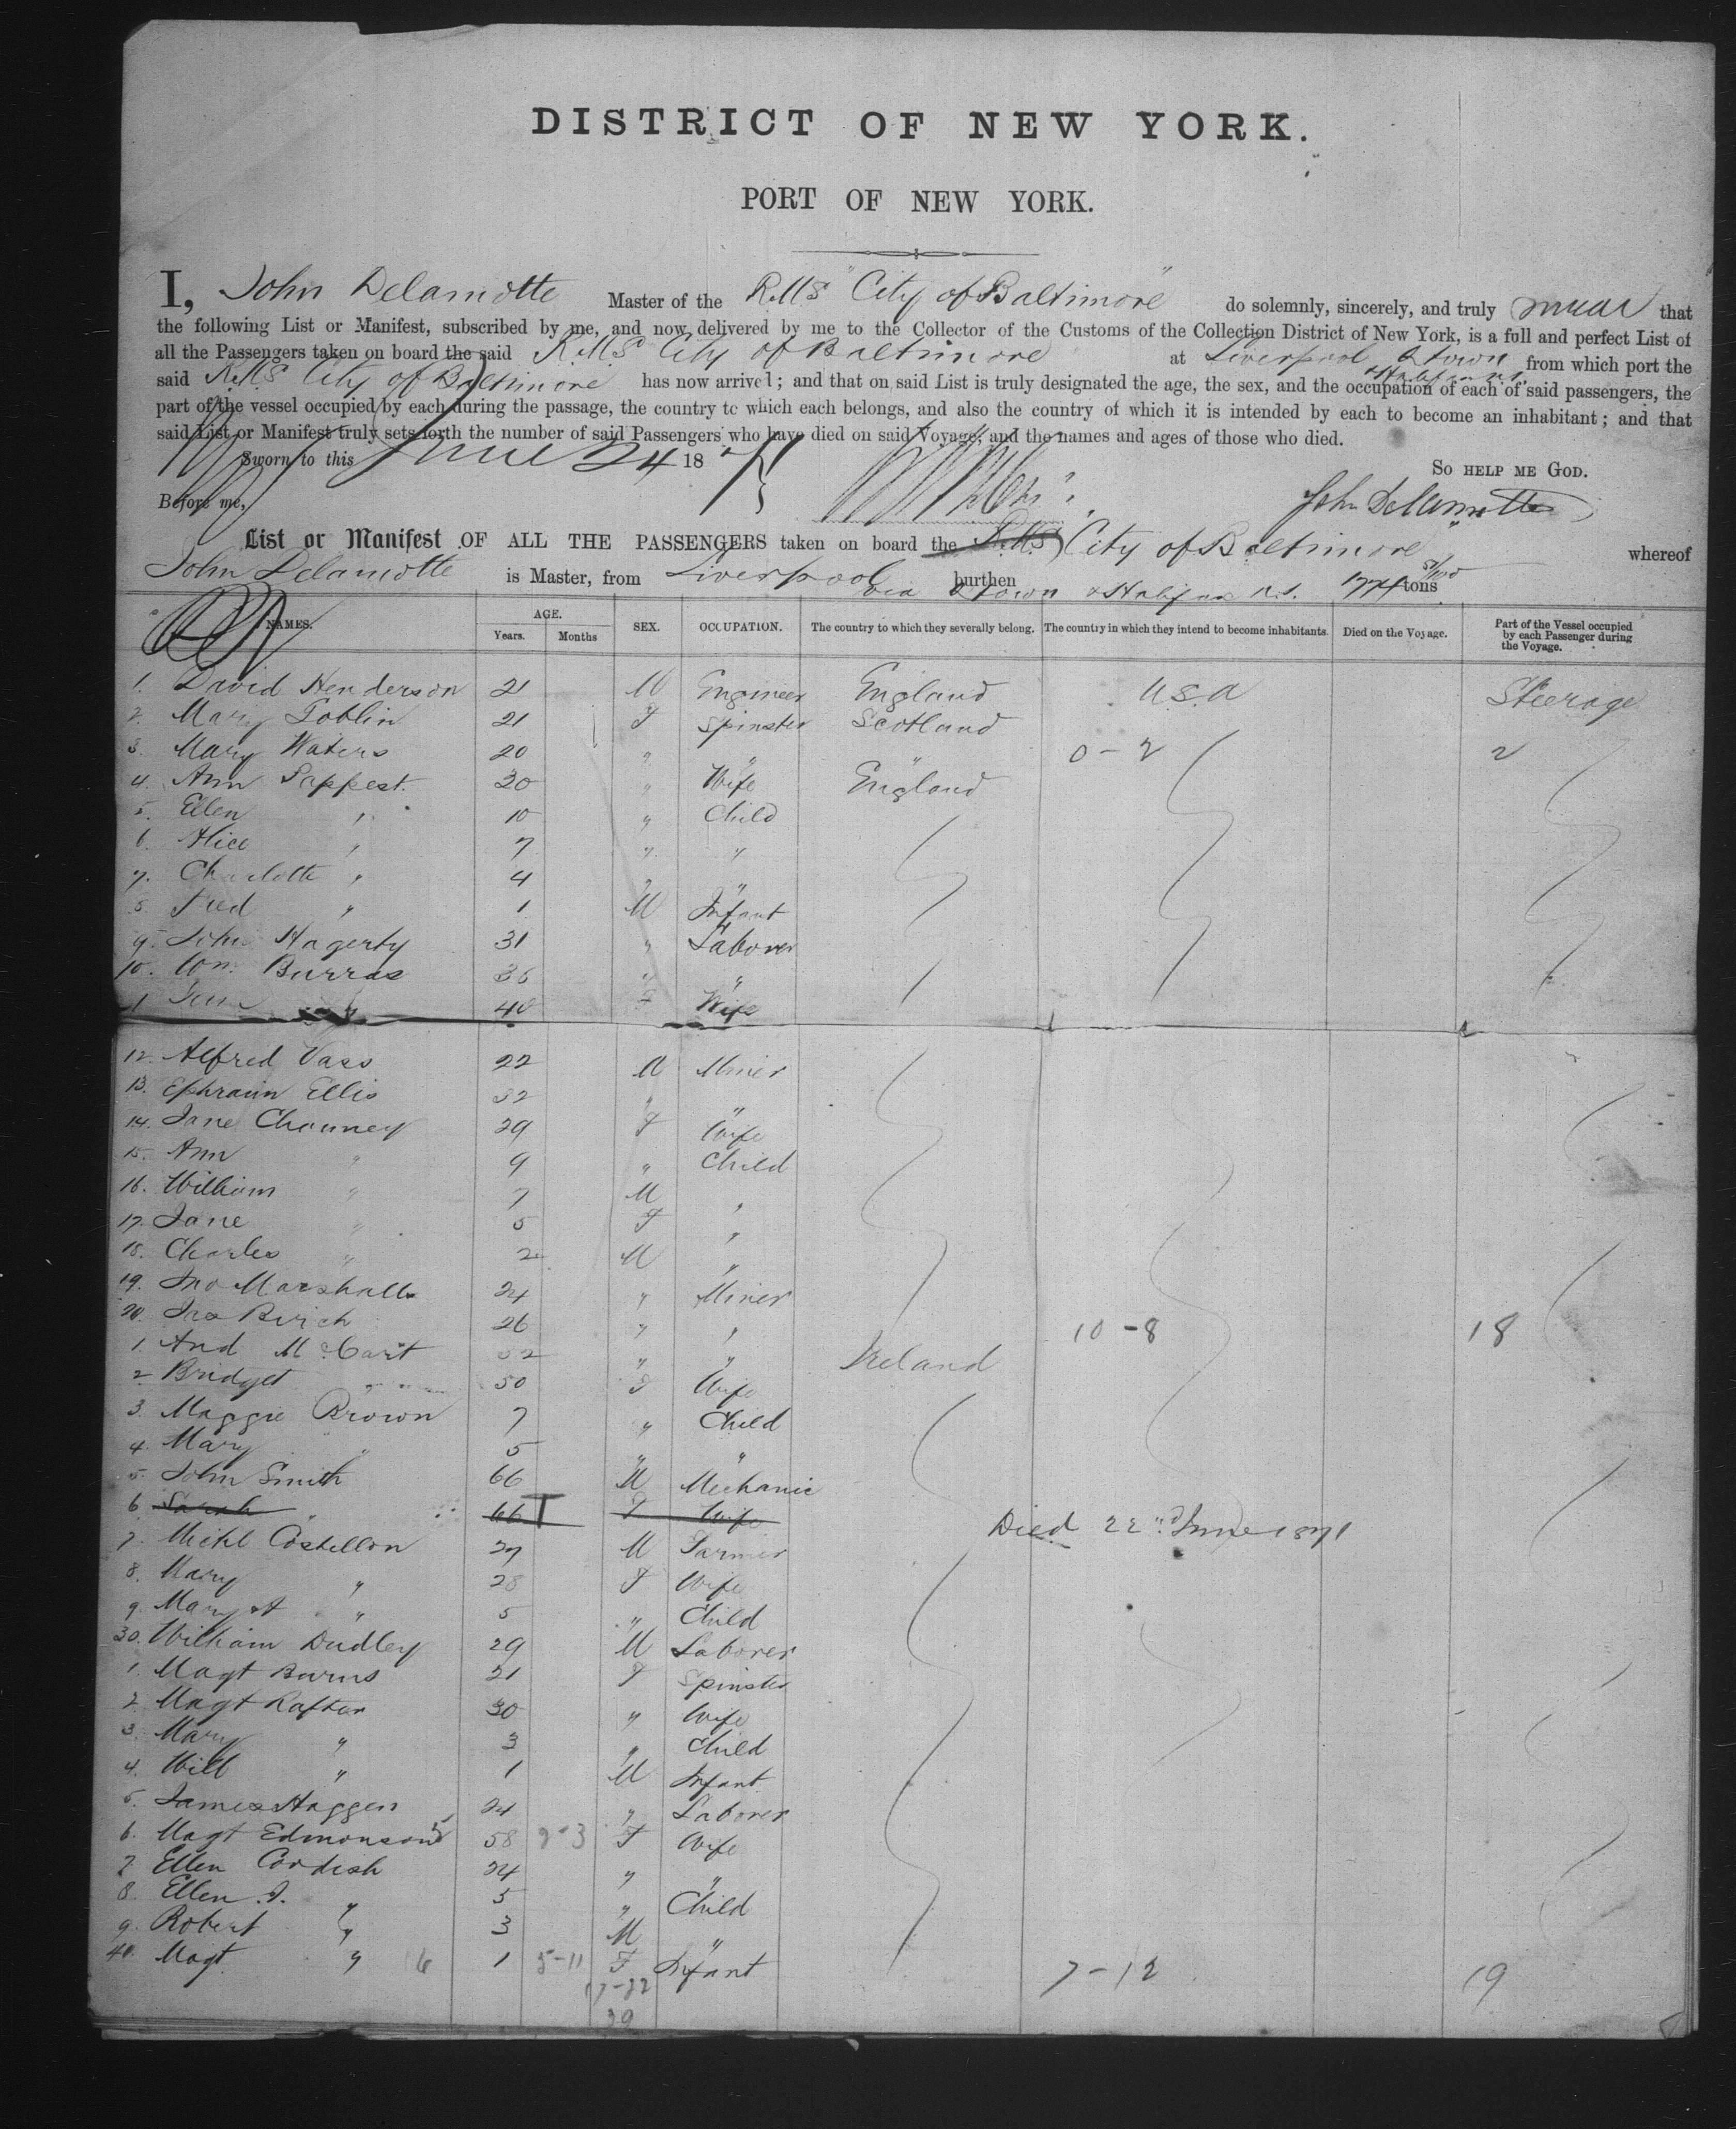 DISTRICT OF NEW YORK.
PORT OF NEW YORK.
I, John Delamotte Master of the RMS "City of Baltimore" do solemnly, sincerely, and truly swear that
the following List or Manifest, subscribed by me, and now delivered by me to the Collector of the Customs of the Collection District of New York, is a full and perfect List of
all the Passengers taken on board the said RMS City of Baltimore at Liverpool Qtown from which port the
said RMS City of Baltimore has now arrived; and that on said List is truly designated the age, the sex, and the occupation of each of said passengers, the
part of the vessel occupied by each during the passage, the country to which each belongs, and also the country of which it is intended by each to become an inhabitant; and that
said List or Manifest truly sets forth the number of said Passengers who have died on said Voyage, and the names and ages of those who died.
Sworn to this June 24 1871
So help me God.
Before me,
John Delamotte
List or Manifest OF ALL THE PASSENGERS taken on board the RMS City of Baltimore whereof
John Delamotte is Master, from Liverpool burthen tons
via Qtown & Halifax N.S.
NAMES. AGE. Years. Months SEX. OCCUPATION. The country to which they severally belong. The country in which they intend to become inhabitants. Died on the Voyage. Part of the Vessel occupied by each Passenger during the Voyage.
1. David Henderson 21 M Engineer England U.S.A Steerage
2. Mary Toblin 21 F Spinster Scotland
3. Mary Waters 20 " " " 0-2 2
4. Ann Sappest 30 " Wife England
5. Ellen " 10 " Child
6. Alice " 7 " "
7. Charlotte " 4 " "
8. Fred " 1 M Infant
9. John Hagerty 31 " Laborer
10. Wm Burras 36 " "
1 " 40 F Wife
12. Alfred Vass 22 M Miner
13. Ephraim Ellis 32 " "
14. Jane Chauncy 29 F Wife
15. Ann " 9 " Child
16. William " 7 M "
17. Jane " 5 F "
18. Charles " 2 M "
19. Jno Marshall 24 " Miner
20. Jas Birch 26 " " 10-8 18
1. And McCart 52 " " Ireland
2 Bridget " " 50 F Wife
3. Maggie Brown 7 " Child
4. Mary " 5 " "
5. John Smith 66 M Mechanic
6 Sarah " 66 F Wife Died 22nd June 1871
7. Michl Costellon 27 M Farmer
8. Mary " 28 F Wife
9. Mary A " 5 " Child
30. William Dudley 29 M Laborer
1. Magt Burns 21 F Spinster
2. Magt Rafter 30 " Wife
3. Mary " 3 " Child
4. Will " 1 M Infant
5. James Haggen 24 " Laborer
6. Magt Edmonson 58 9-3 F Wife
7. Ellen Cordish 24 " "
8. Ellen J. " 5 " Child
9. Robert " 3 M "
40. Magt " 6 1 5-11 F Infant 7-12 19
17-22
39